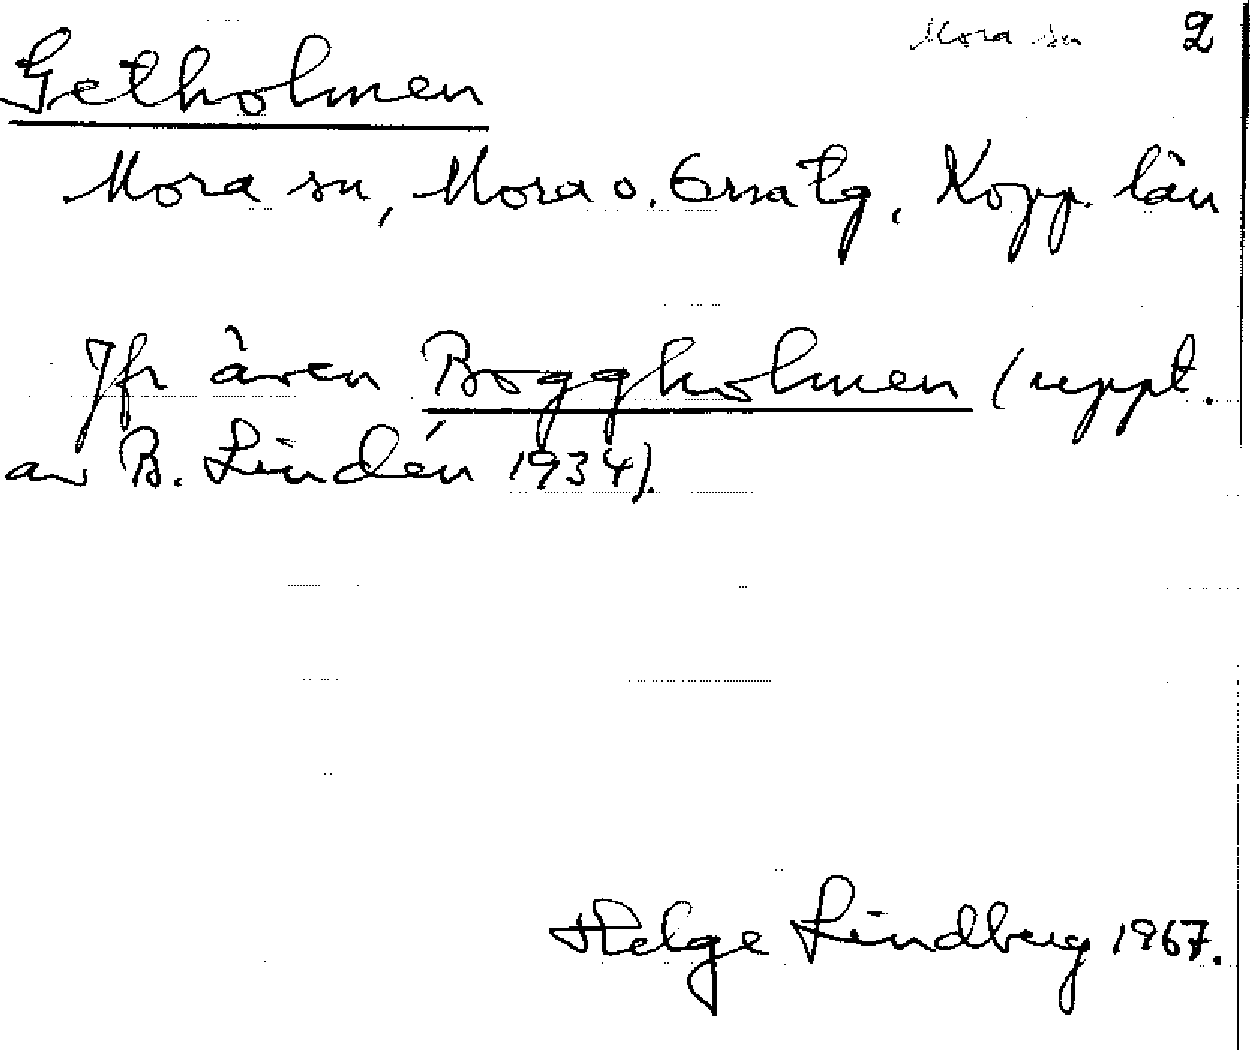 Mora sn 2
Getholmen
Mora sn, Mora o. Orsa tg, Kopp. län
Jfr även Boggholmen (uppt.
av B. Lindén 1934).
Helge Lindberg 1967.